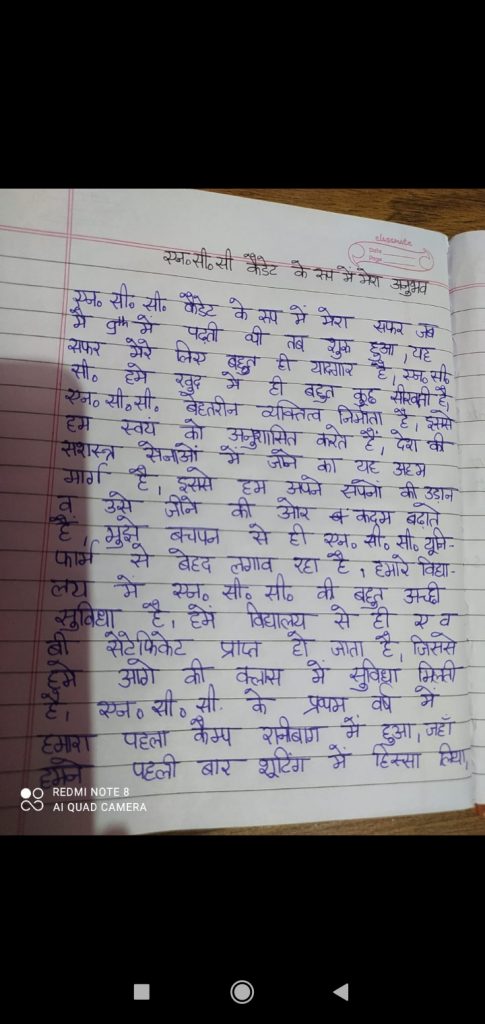 classmate
Date
Page
एन॰सी॰सी कैडेट के रूप में मेरा अनुभव
एन॰ सी॰ सी॰ कैडेट के रूप में मेरा सफर जब
मैं 9th में पढ़ती थी तब शुरू हुआ, यह
सफर मेरे लिए बहुत ही यादगार है, एन॰ सी॰
सी॰ हमे खुद में ही बहुत कुछ सीखती है,
एन॰ सी॰ सी॰ बेहतरीन व्यक्तित्व निर्माता है, इससे
हम स्वयं को अनुशासित करते हैं, देश की
सशस्त्र सेनाओं में जाने का यह अहम
मार्ग है, इससे हम अपने सपनों की उड़ान
व उसे जीने की ओर कदम बढ़ाते
हैं, मुझे बचपन से ही एन॰ सी॰ सी॰ यूनि-
फार्म से बेहद लगाव रहा है, हमारे विद्या-
लय में एन॰ सी॰ सी॰ की बहुत अच्छी
सुविधा है, हमें विद्यालय से ही ए व
बी सेर्टिफिकेट प्राप्त हो जाता है, जिससे
हमे आगे की क्लास में सुविधा मिलती
है, एन॰ सी॰ सी॰ के प्रथम वर्ष में
हमारा पहला कैम्प रानीबाग में हुआ, जहाँ
हमने पहली बार शूटिंग में हिस्सा लिया,
REDMI NOTE 8
AI QUAD CAMERA